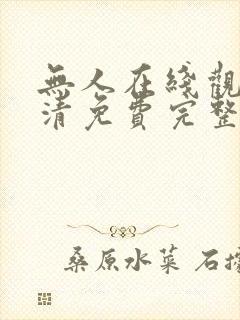 無人在綫觀
清免費完整
桑原水菜 石擋